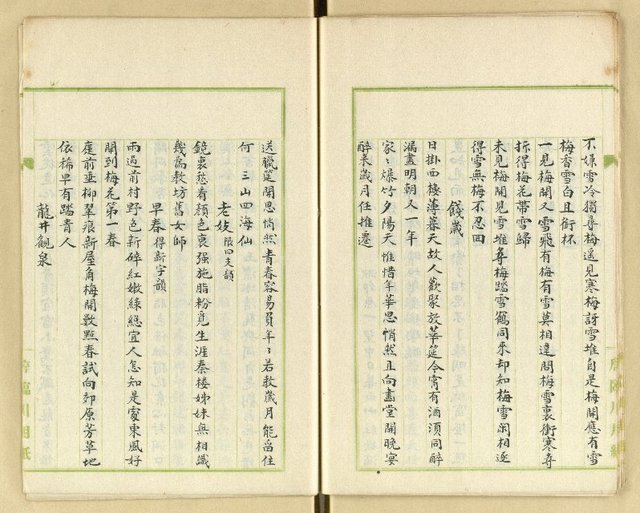 不嫌雪冷獨尋梅遙見寒梅訝雪堆自是梅開應有雪
梅香雪白且銜杯
一見梅開又雪飛有梅有雪莫相違問梅雪裏衝寒尋
折得梅花帶雪歸
未見梅開見雪堆尋梅踏雪鶴同來却知梅雪閑相逐
得雪無梅不忍回
餞歲
日掛西樓薄暮天故人歡聚放華筵今宵有酒須同醉
漏盡明朝又一年
家〻爆竹夕陽天惟惜年華思悄然且向畫堂開晚宴
醉来歲月任推遷
送臘筵開思悄然青春容易負年〻若教歲月能留住
何 三山四海仙
老妓 限四支韻
鏡裏愁看顏色衰强施脂粉覓生涯秦樓姊妹無相識
幾為教坊舊女師
早春 得新字韻
雨過前村野色新碎紅嫩綠總宜人怎知是處東風好
開到梅花第一春
庭前垂柳翠痕新屋角梅開數點春試向郊原芳草地
依稀早有踏青人
龍井觀泉